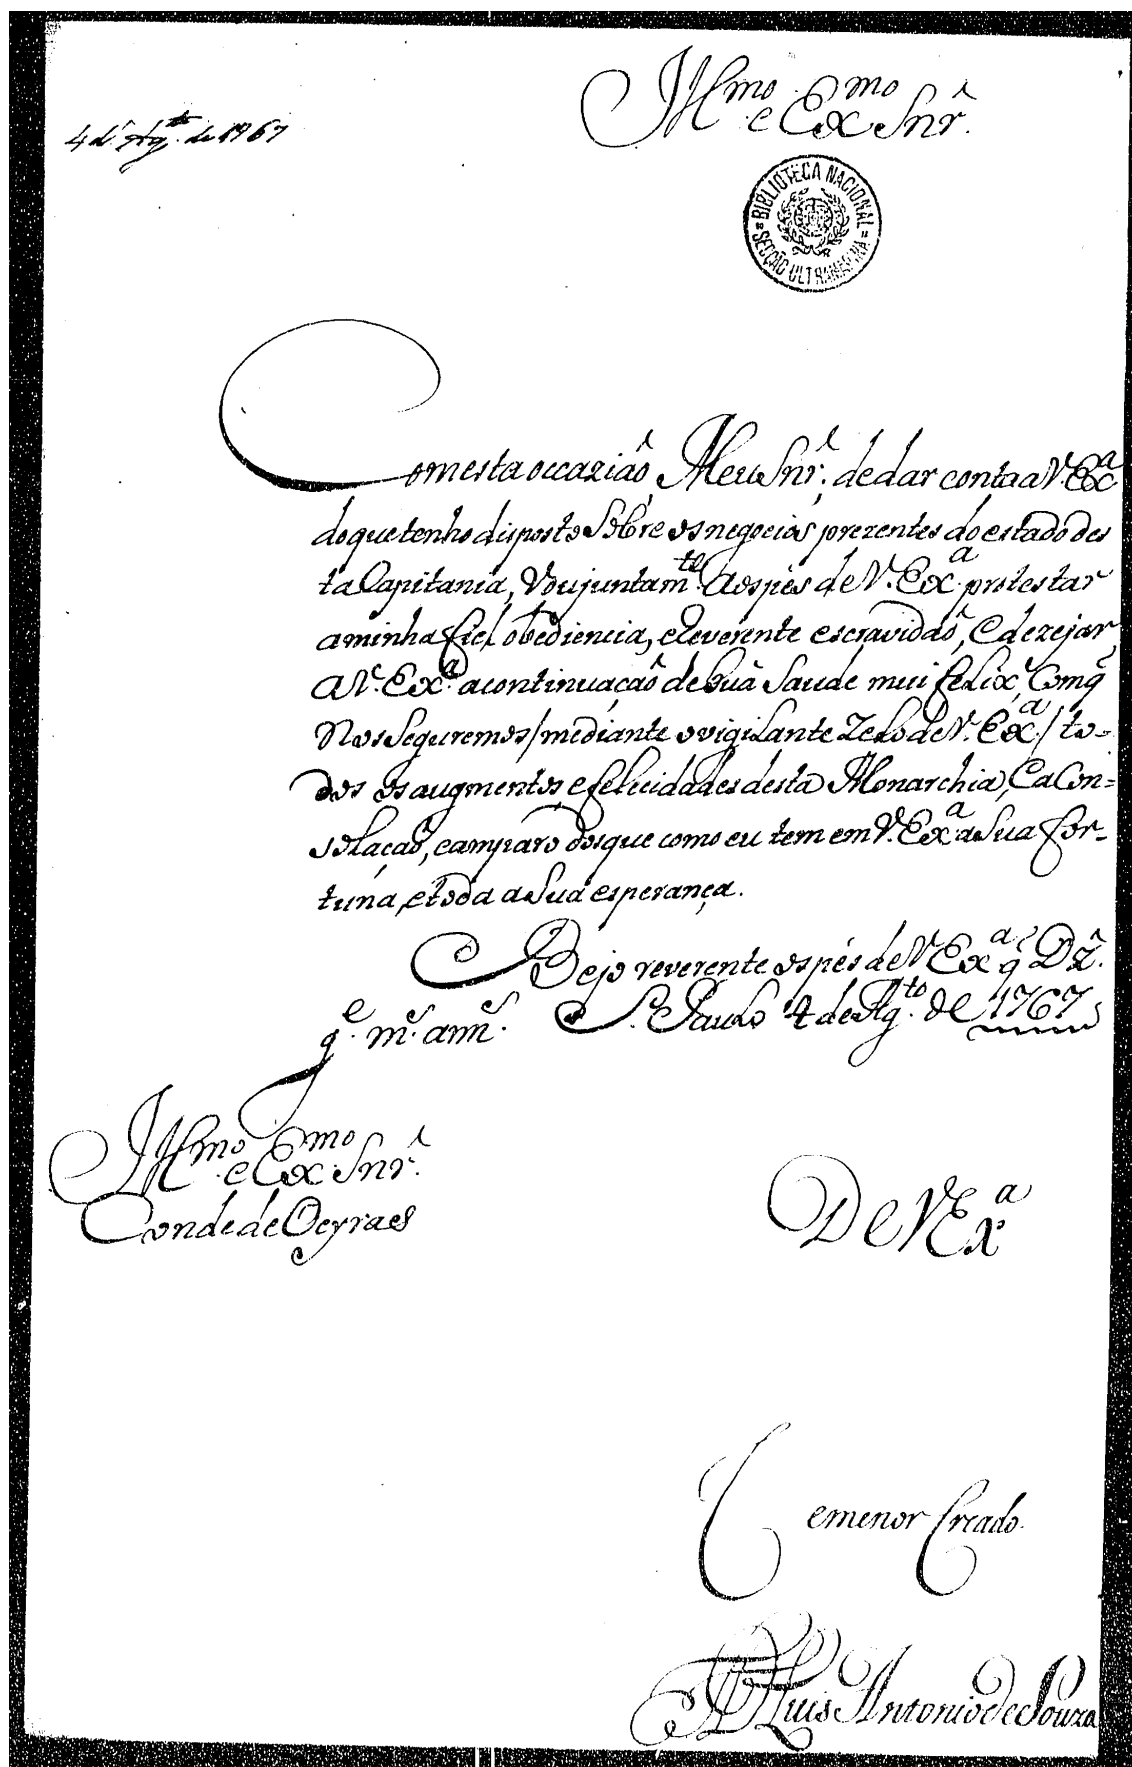 4 d' Ag.to de 1767
Ill.mo e Ex.mo Snr.
BIBLIOTECA NACIONAL
SECÇÃO ULTRAMARINA
Com esta occazião, Meu Snr., de dar conta a V. Ex.a
do que tenho disposto sobre os negocios prezentes do estado des
ta Capitania, Vou juntam.te aos pés de V. Ex.a protestar
a minha fiel obediencia, e Reverente escravidão, e dezejar
a V. Ex.a a continuação de húa Saude mui feliz, Com q
Nos Seguremos / mediante o vigilante Zelo de V. Ex.a / to-
dos os augmentos, e felicidades desta Monarchia, e a Con=
solação, e amparo dos que como eu tem em V. Ex.a a Sua for-
tuna, e toda a Sua esperança.
Bejo reverente os pés de V Ex.a q D.s
g.e m.s ann.s S. Paulo 4 de Ag.to de 1767
Ill.mo e Ex.mo Snr.
Conde de Oeyras
De V Ex.a
e menor Creado.
D. Luis Antonio de Souza